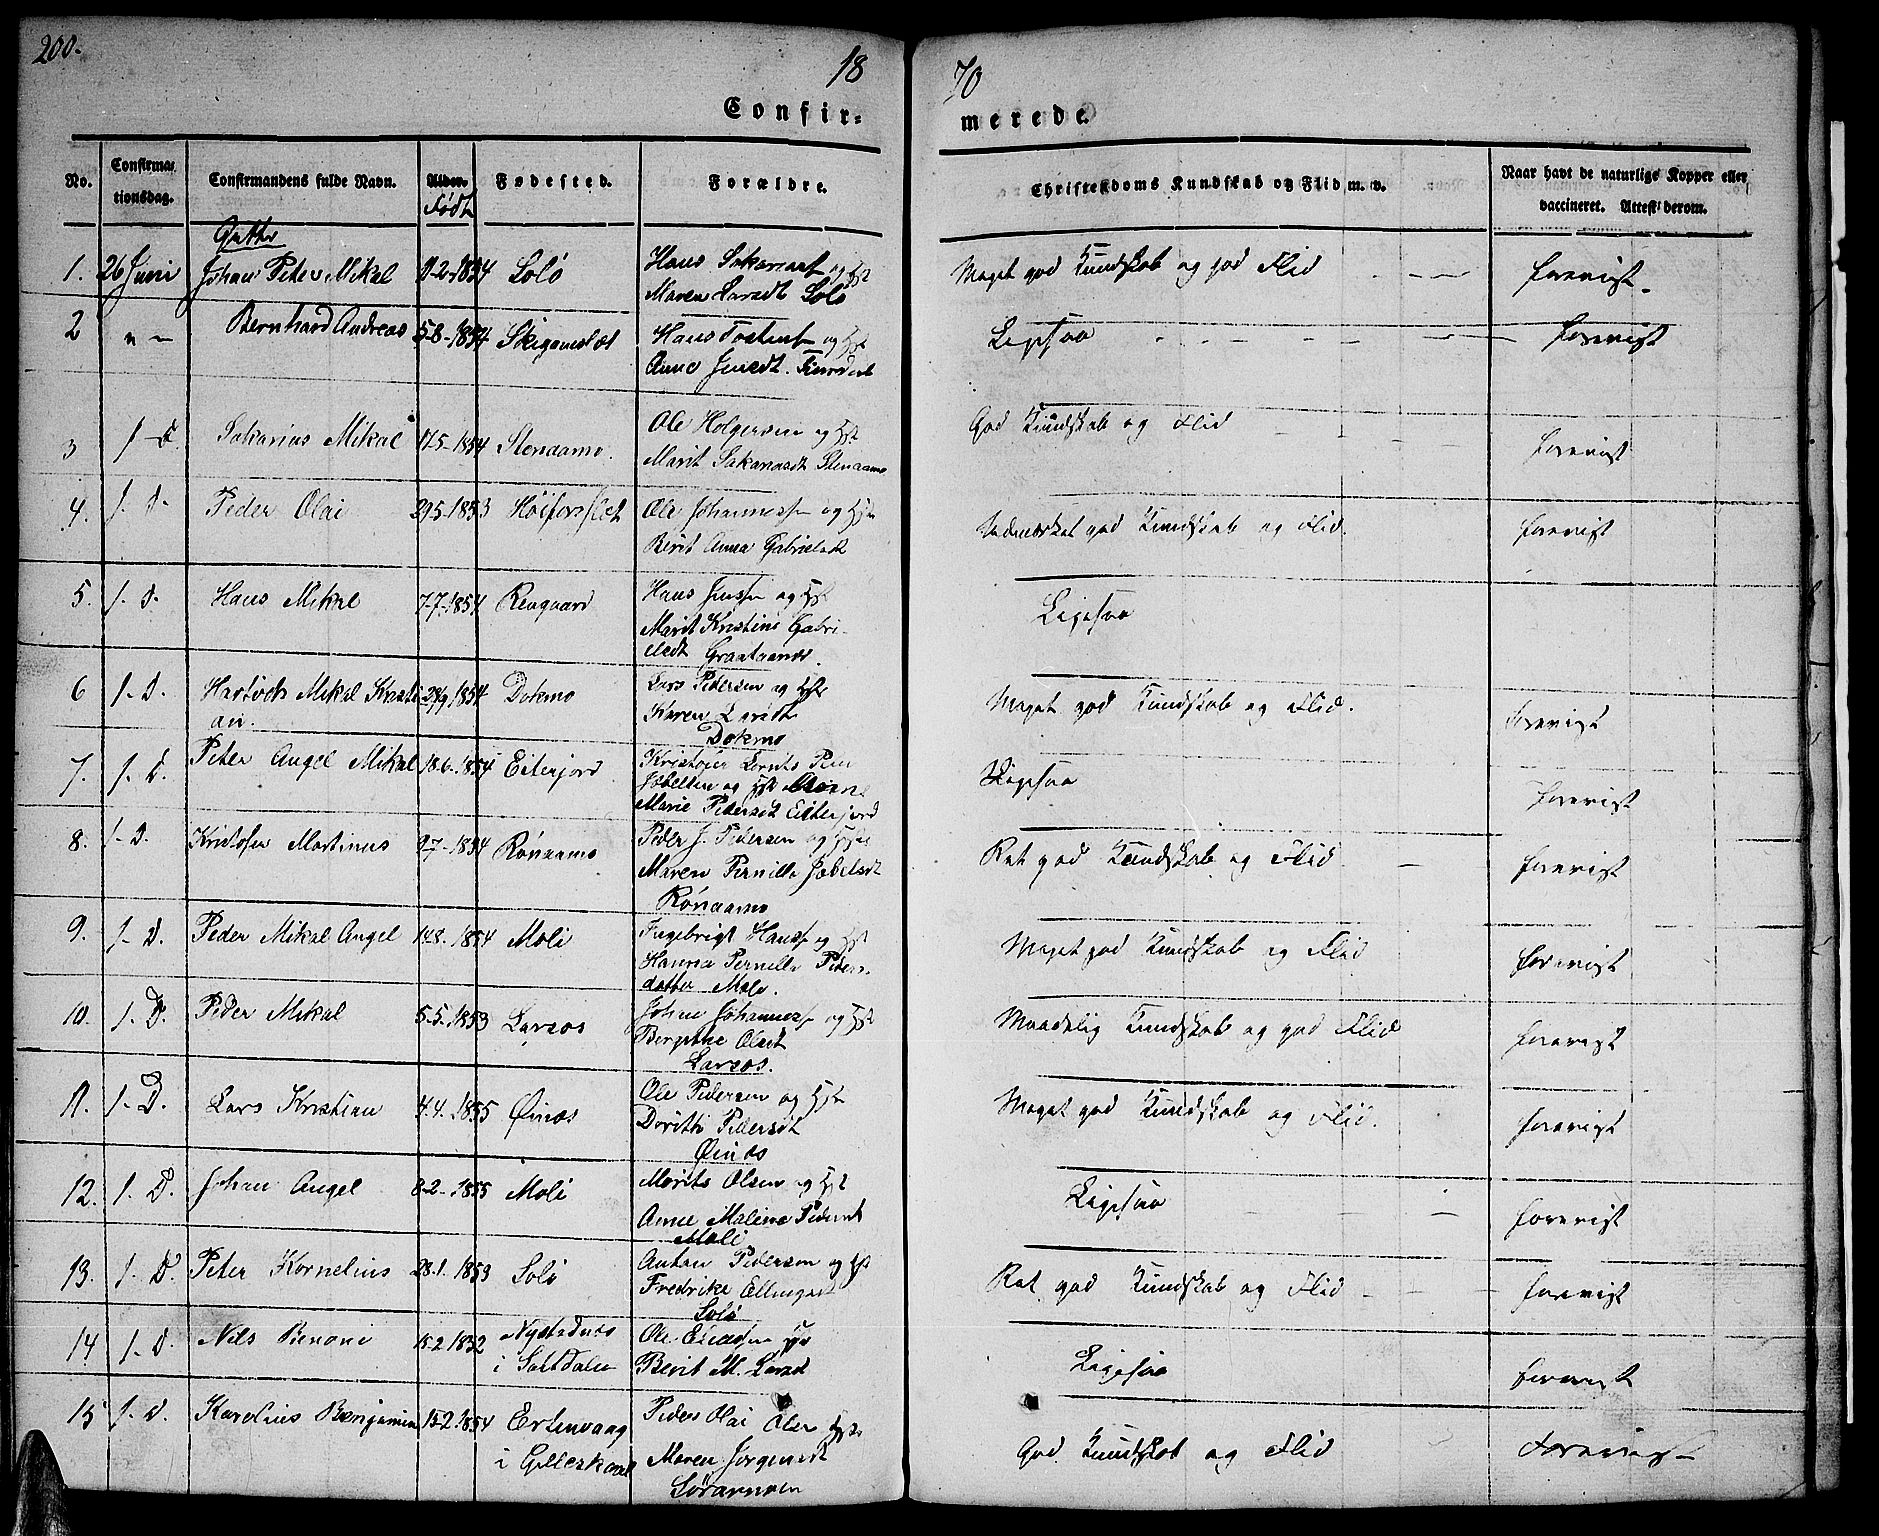 200.
18
70
Confir-
merede.
No.
Confirma-
tionsdag.
Confirmandens fulde Navn.
Alder.
Født
Fødested.
Forældre.
Christendoms Kundskab og Flid m. v.
Naar havt de naturlige Kopper eller
vaccineret. Attest derom.
Gutter
1. 26 Juni Johan Peter Mikal 11-2-1854 Solö Hans Sakariass og Hst
Maren Larsdt Solö
Meget god Kundskab og god Flid forevist.
2 " - Bernhard Andreas 5-8-1854 Skigamslet Hans Tostens og Hst
Anne Jensdt.
Ligesaa forevist
3 f. D. Sakarias Mikal 17.5-1854 Stenaamo. Ole Holgersen og Hst
Marit Sakariasdt Stenaamo
God Kundskab og Flid forevist
4. f. D. Peder Olai 29.5.1853 Høiforsslet Ole Johanness og Hst
Berit Anna Gabrielsdt
Udmærket god Kundskab og Flid. forevist
5. f. D. Hans Mikal 7-7-1854 Rengaard Hans Jenss og Hst
Marit Kristine Gabri-
elsdt Graataanes.
Ligesaa
6 f. D. Hartvik Mikal Kristi 28/9 1854 Dokmo Lars Pedersen og Hst
an. Karen Larsdt
Dokmo
Meget god Kundskab og Flid. forevist
7. f. D. Peter Angel Mikal 18.6.1854 Eiterjord Kristofer Lornts Peter
og Hst
Marie Pedersdt Eiterjord
Ligesaa forevist
8. f. D. Kristofer Martinus 9-7-1854 Rönaamo Peder J. Pedersen og Hst
Maren Pernilla Jobelsdt
Rönaamo
Ret god Kundskab og Flid forevist
9. f. D. Peder Mikal Angel 14.8.1854 Moli Ingebrigt Hanss og Hst
Hanna Pernilla Peders
datter Moli.
Meget god Kundskab og Flid forevist
10. f. D. Peder Mikal 5-5-1853 Larsos Johan Johanness og Hst
Bergithe Olsdt
Larsos.
Maadelig Kundskab og god Flid forevist
11. f. D. Lars Kristian 4.4.1855 Øines Ole Pedersen og Hst
Dorith Pedersdt
Øines
Meget god Kundskab og Flid. forevist
12. f. D. Johan Angel 8-2-1855 Moli Morits Olsen og Hst
Anne Malena Pedersdt
Moli
Ligesaa forevist
13. f. D. Peter Kornelius 28.1.1853 Solö Anton Pedersen og Hst
Fredrika Ellingsdt
Solö
Ret god Kundskab og Flid forevist
14 f. D. Nils Benoni 15.2.1852 Nystadnes Ole
i Saltdalen Berit M. Larsdt
Ligesaa forevist
15 f. D. Karelius Benjamin 15-2-1854 Ertenvaag Peder Olai Olsen Hst
i Gilleskaal Maren Jørgensdt
Sörarnøen
God Kundskab og Flid Forevist